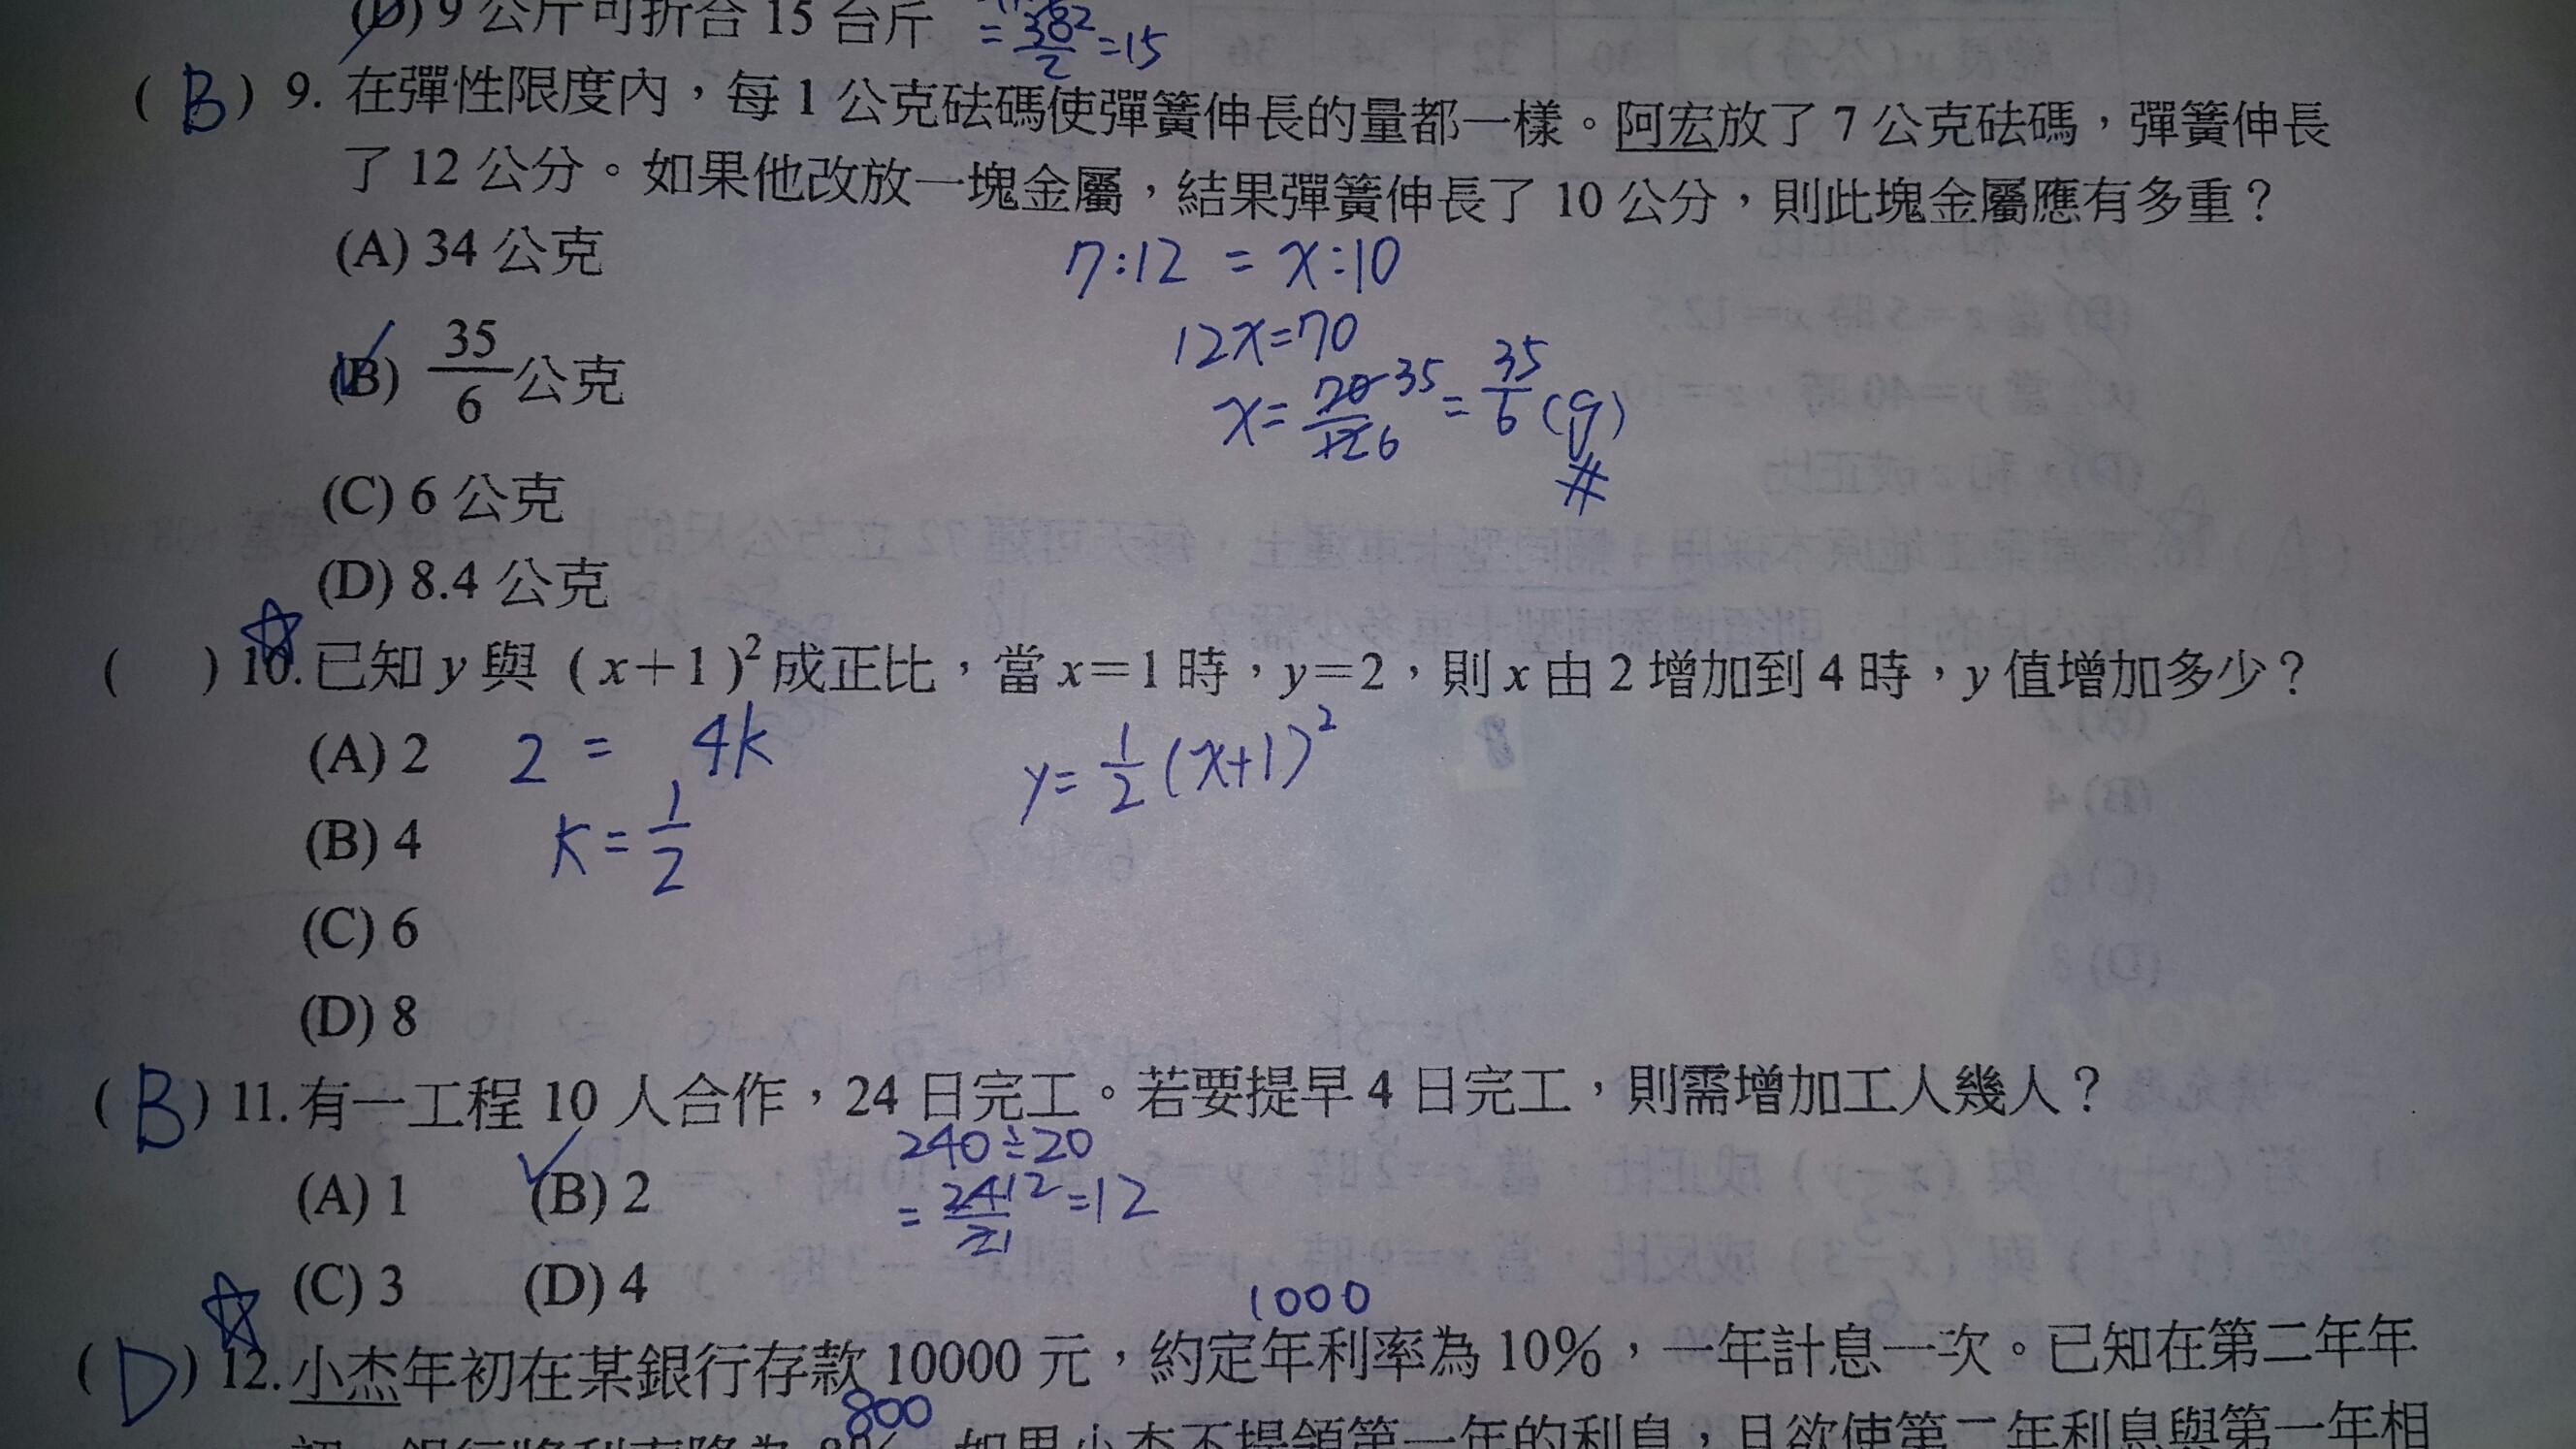 (D) 9 公斤可折合 15 台斤 = 30/2 = 15
( B ) 9. 在彈性限度內，每 1 公克砝碼使彈簧伸長的量都一樣。阿宏放了 7 公克砝碼，彈簧伸長
了 12 公分。如果他改放一塊金屬，結果彈簧伸長了 10 公分，則此塊金屬應有多重？
(A) 34 公克
7:12 = x:10
12x=70
(B) 35/6 公克
x= 70/12 35/6 = 35/6 (g)
#
(C) 6 公克
(D) 8.4 公克
( ) ☆10. 已知 y 與（x＋1）²成正比，當 x＝1 時，y＝2，則 x 由 2 增加到 4 時，y 值增加多少？
(A) 2 2 = 4k y= 1/2 (x+1)²
(B) 4 k= 1/2
(C) 6
(D) 8
( B ) 11. 有一工程 10 人合作，24 日完工。若要提早 4 日完工，則需增加工人幾人？
240÷20
(A) 1 (B) 2 = 24 12/2 1 =12
(C) 3 (D) 4
1000
( D ) ☆12. 小杰年初在某銀行存款 10000 元，約定年利率為 10%，一年計息一次。已知在第二年年
800
初，銀行將利率降為 8%，如果小杰不提領第一年的利息，且欲使第二年利息與第一年相